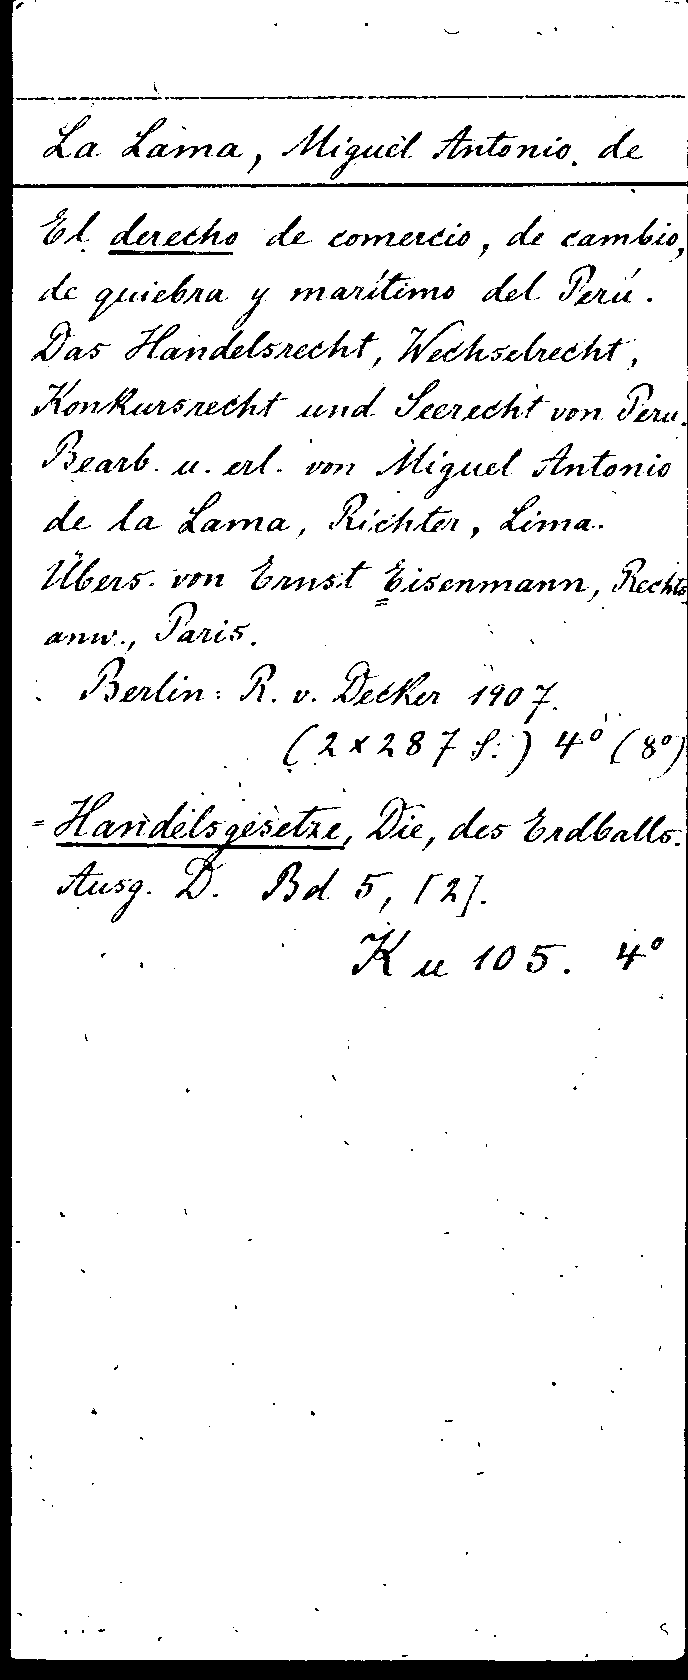 La Lama, Miguel Antonio de
El derecho de comercio, de cambio,
de quiebra y marítimo del Perú.
Das Handelsrecht, Wechselrecht,
Konkursrecht und Seerecht von Peru.
Bearb. u. erl. von Miguel Antonio
de la Lama, Richter, Lima.
Übers. von Ernst Eisenmann, Rechts=
anw., Paris.
Berlin: R. v. Decker 1907.
(2 x 287 S.) 4° (8°)
= Handelsgesetze, Die, des Erdballs.
Ausg. D. Bd 5, [2].
K u 105. 4°